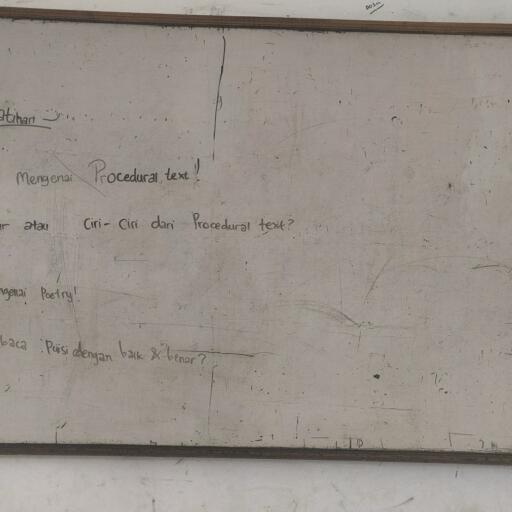 atihan
Mengenai Procedural text!
r atau Ciri-Ciri dari Procedural text?
ngenai Poetry!
baca Puisi dengan baik & benar?